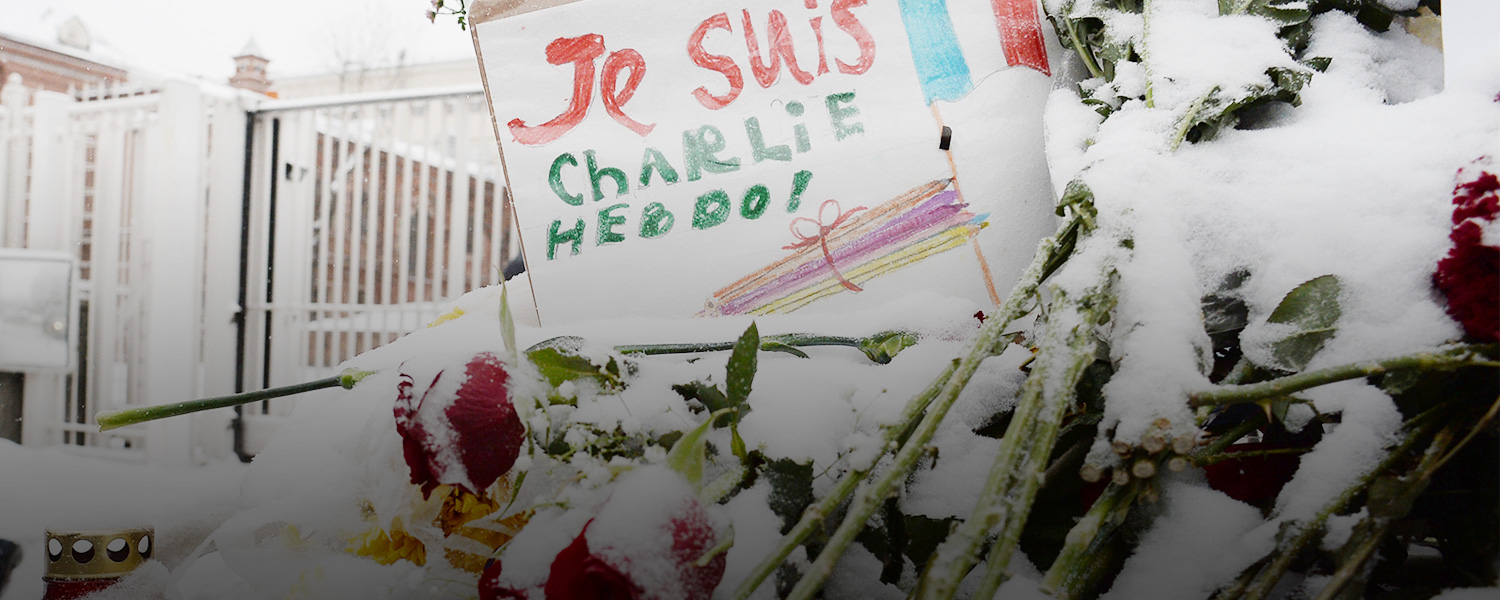 Je suis
CHARLiE
HEBDO!